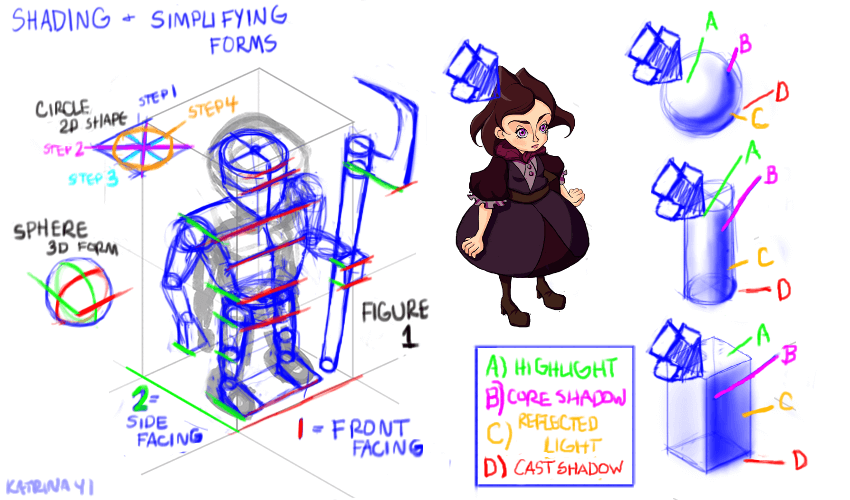 SHADING + SIMPLIFYING
FORMS
CIRCLE
2D SHAPE
STEP 1
STEP 4
STEP 2
STEP 3
SPHERE
3D FORM
FIGURE
1
2=
SIDE
FACING
1 = FRONT
FACING
KATRINA YI
A
B
D
C
A
B
C
D
A
B
C
D
A) HIGHLIGHT
B) CORE SHADOW
C) REFLECTED
LIGHT
D) CAST SHADOW